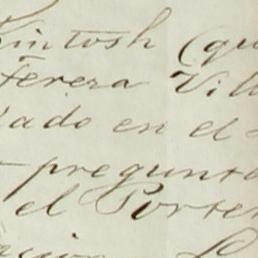 Kintosh (qu
Ferera Vill
lado en el
pregunta
el Porter